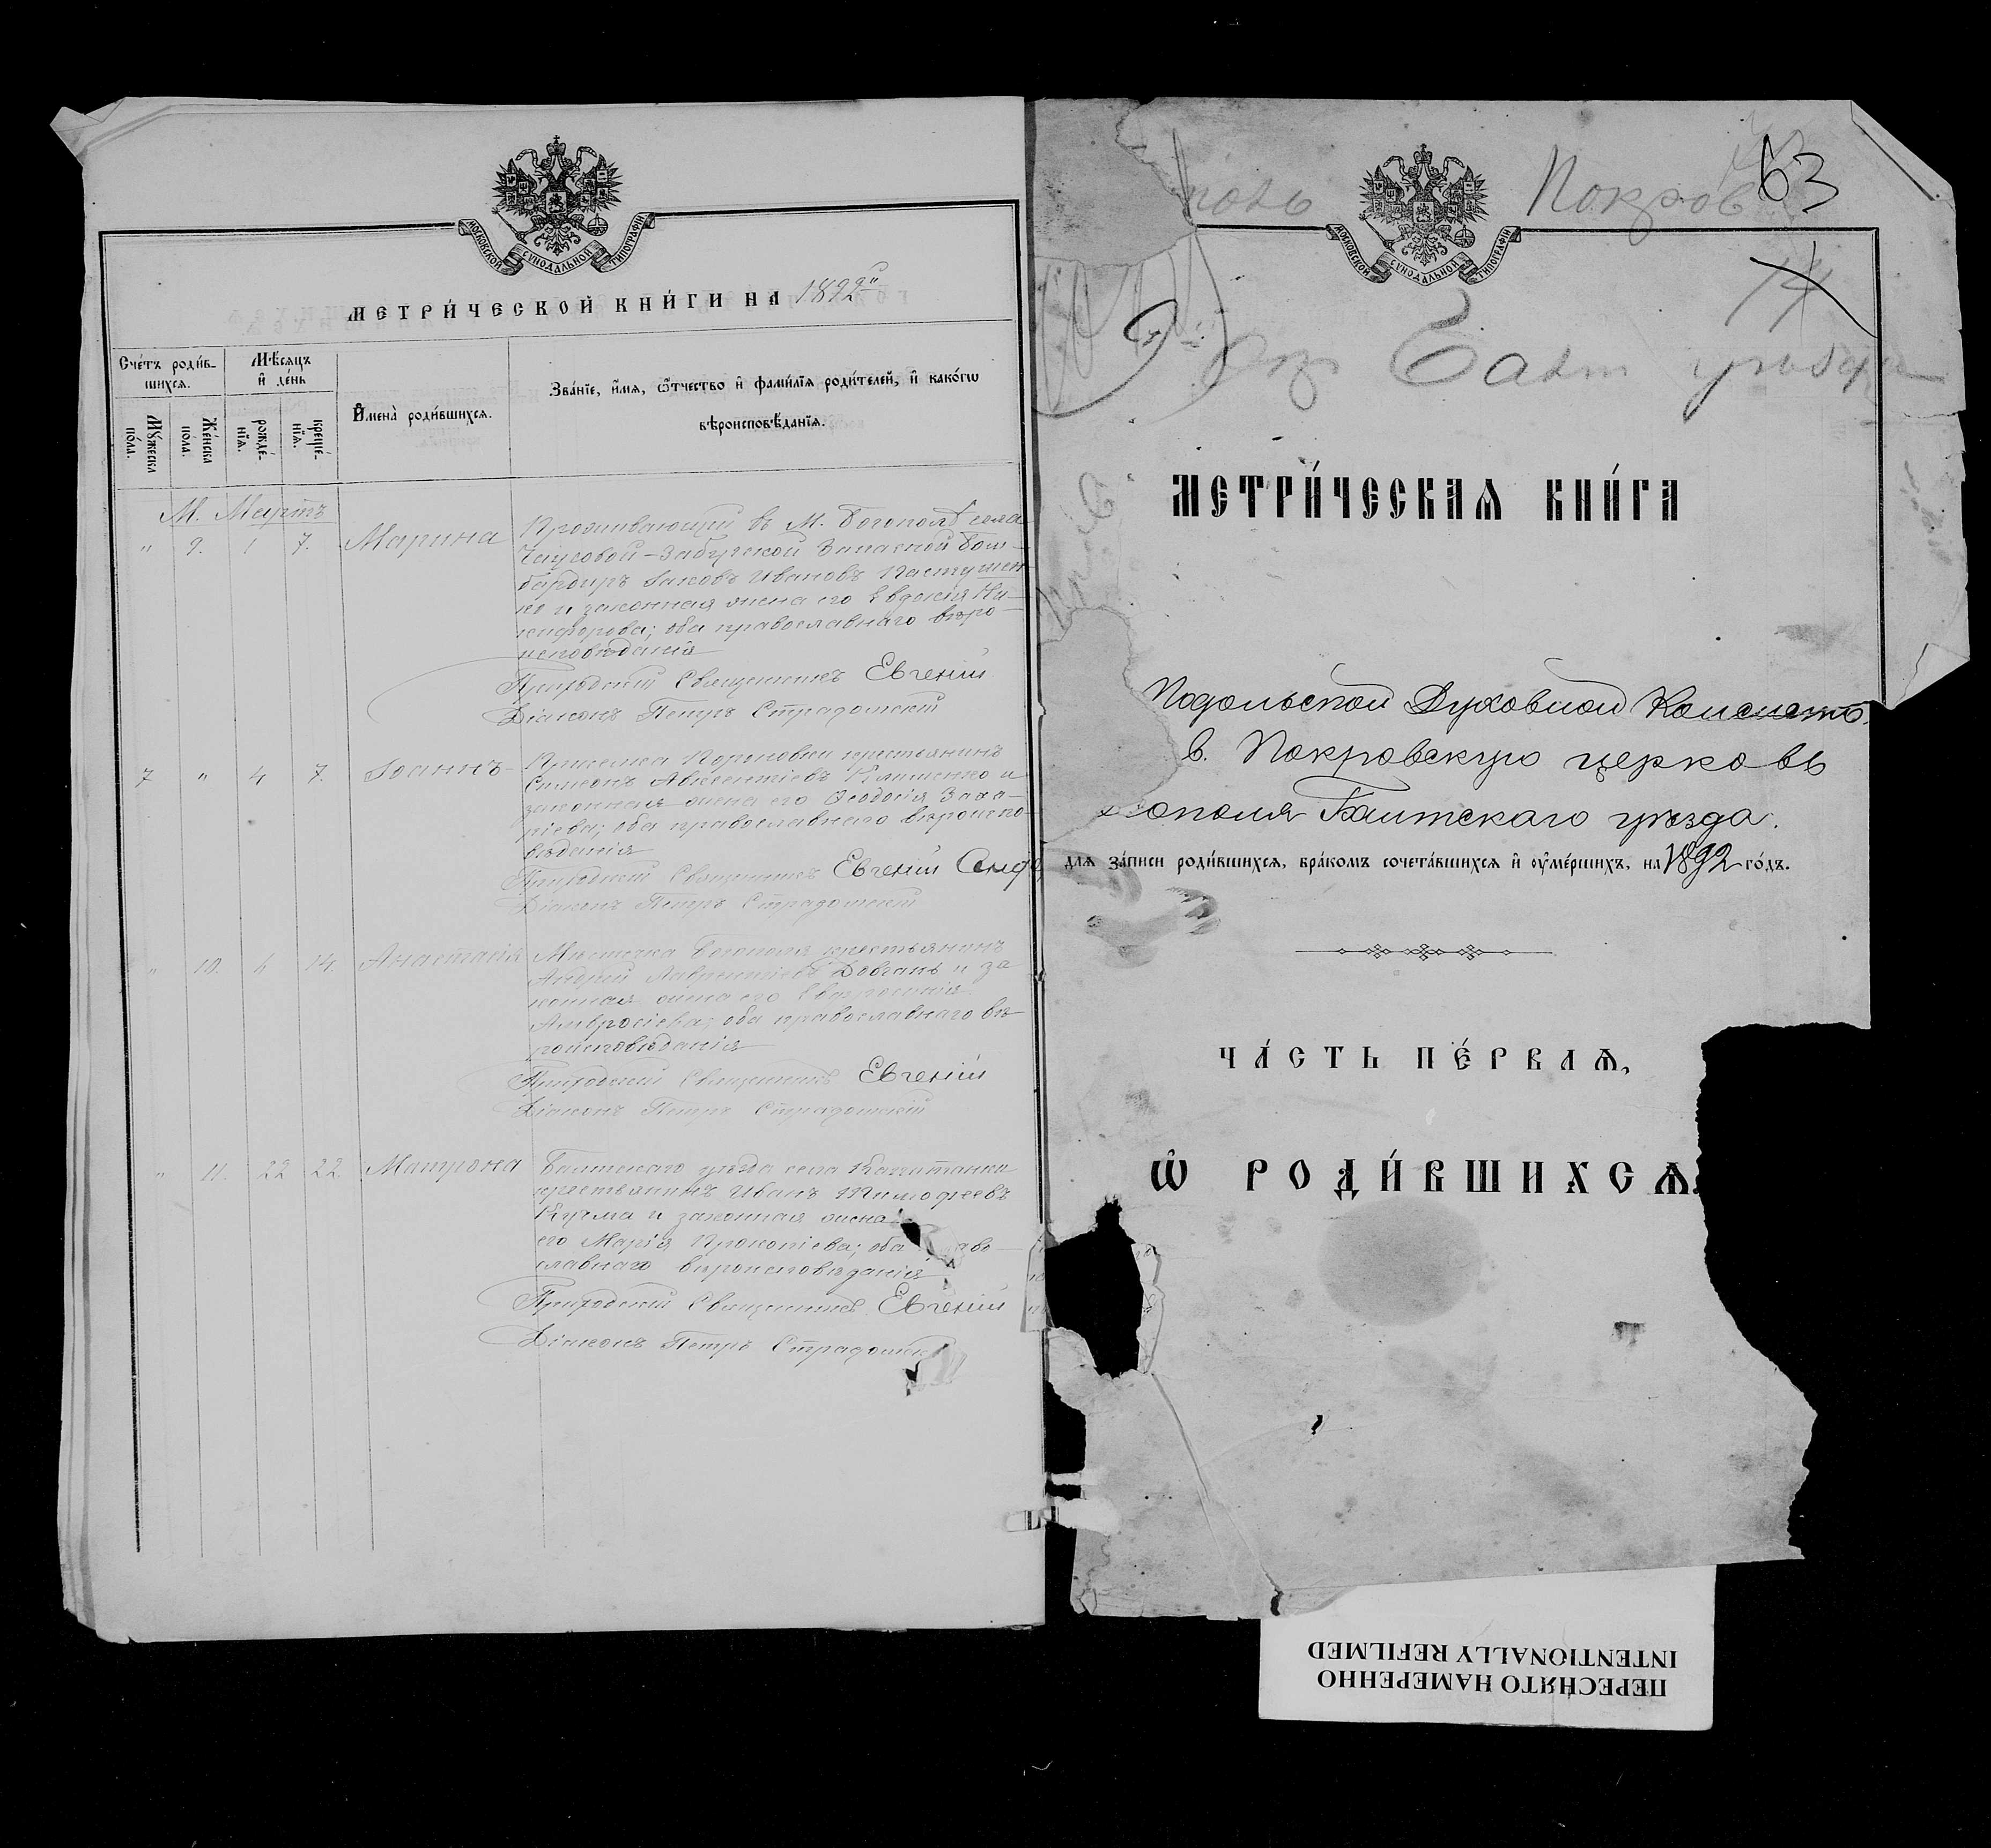 МОСКОВСКОЙ СУНОДАЛЬНОЙ ТИПОГРАФІИ
МЕТРИ́ЧЕСКОЙ КНИ́ГИ НА 1892й
Сче́тъ роди́в-
шихся.
Мѣ́сяцъ
и҆ де́нь
Мꙋ́жеска
по́ла.
Же́нска
по́ла.
рожде́-
нїѧ.
креще́-
нїѧ.
И҆мена̀ роди́вшихсѧ.
Зва́нїе, и҆́мѧ, ѿтчество и҆ фами́лїѧ роди́телей, и҆ како́гѡ
вѣроисповѣ́данїѧ.
М. Мартъ
" 9. 1 7. Марина
Проживающій въ М. Богополѣ села
Чаусовой-Забугской Запасной Бом-
бардиръ Іаковъ Ивановъ Пастушен-
ко и законная жена его Евдокія Ни-
кифорова; оба православнаго вѣро-
исповѣданія
Приходскій Священникъ Евгеній
Діаконъ Петръ Страдомскій
7 " 4 7. Іоаннъ
крестьянинъ
Симеонъ Авксентіевъ Клименко и
законная жена его Ѳеодосія Заха-
ріева; оба православнаго вѣроиспо-
вѣданія
Приходскій Священникъ Евгеній
Діаконъ Петръ Страдомскій
" 10. 4 14 Анастасія
Мѣстечка Богополя крестьянинъ
Андрей Лаврентіевъ Довгань и за-
конная жена его Евфросинія
Амвросіева; оба православнаго вѣ-
роисповѣданія
Приходскій Священникъ Евгеній
Діаконъ Петръ Страдомскій
" 11. 22 22 Матрона
Балтскаго уѣзда села Капитанки
крестьянинъ Иванъ Тимофеевъ
Кучма и законная жена
его Марія Прокопіева; оба
славнаго вѣроисповѣданія
Приходскій Священникъ Евгеній
Діаконъ Петръ
поль Покров 63
14
Балт уѣзда
МОСКОВСКОЙ СУНОДАЛЬНОЙ ТИПОГРАФІИ
МЕТРИ́ЧЕСКАѦ КНИ́ГА
Подольской Духовной
в. Покровскую церковь
ополя Балтскаго уѣзда.
длѧ за́писи роди́вшихсѧ, бра́комъ сочета́вшихсѧ и҆ ᲂу҆ме́ршихъ, на 1892 го́дъ.
ЧА́СТЬ ПЕ́РВАѦ,
Ѡ҆ РОДИ́ВШИХСѦ.
ПЕРЕСНЯТО НАМЕРЕННО
INTENTIONALLY REFILMED